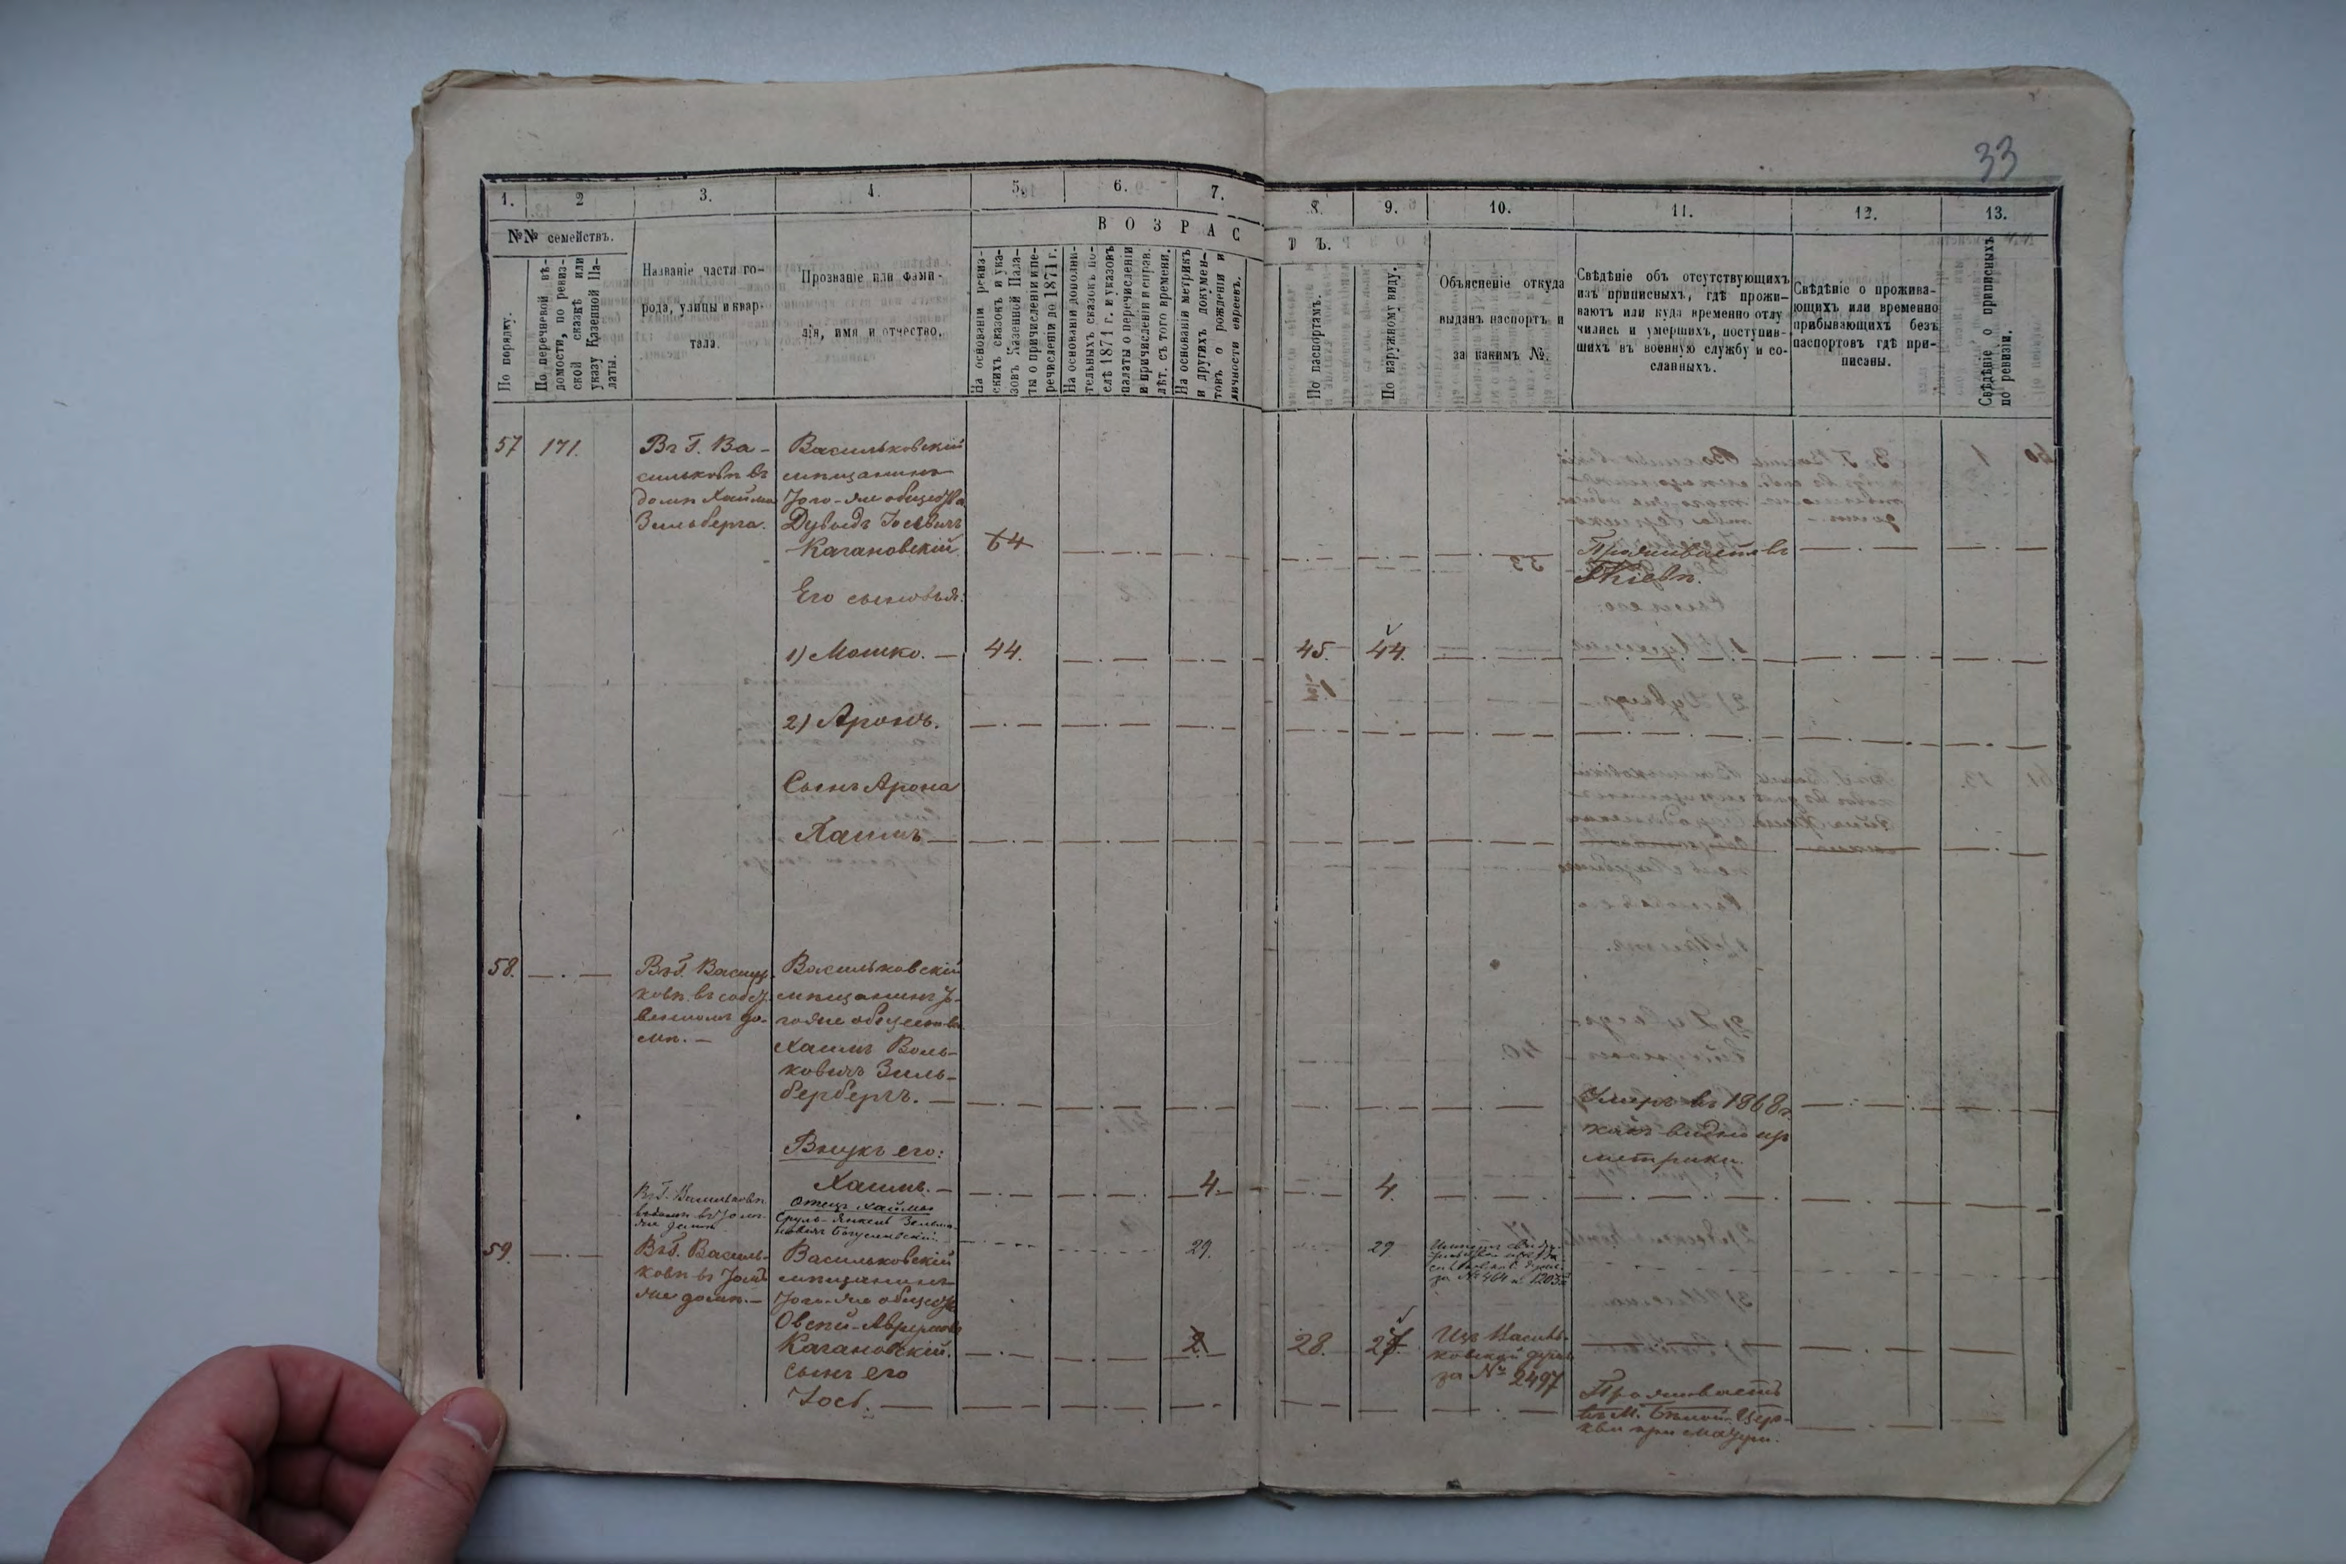 33
1.
2
3.
4.
5.
6.
7.
8.
9.
10.
11.
12.
13.
№№ семействъ.
ВОЗРАС
Т Ъ.
По порядку.
По перечневой вѣ-
домости, по ревиз-
ской сказкѣ или
указу Казенной Па-
латы.
Названіе части го-
рода, улицы и квар-
тала.
Прозваніе или фами-
лія, имя и отчество.
На основаніи ревиз-
скихъ сказокъ и ука-
зовъ Казенной Пала-
ты о причисленіи и пе-
речисленіи до 1871 г.
На основаніи дополни-
тельныхъ сказокъ по-
слѣ 1871 г. и указовъ
палаты о перечисленіи
и причисленіи и справ.
лѣт. съ того времени.
На основаніи метрикъ
и другихъ докумен-
товъ о рожденіи и
личности евреевъ.
По паспортамъ.
По наружному виду.
Объясненіе откуда
выданъ паспортъ и
за какимъ №.
Свѣдѣніе объ отсутствующихъ
изъ приписныхъ, гдѣ прожи-
ваютъ или куда временно отлу
чились и умершихъ, поступив-
шихъ въ военную службу и со-
сланныхъ.
Свѣдѣніе о прожива-
ющихъ или временно
прибывающихъ безъ
паспортовъ гдѣ при-
писаны.
Свѣдѣніе о приписныхъ
по ревизіи.
57
171.
Въ Г. Ва-
сильковѣ въ
домѣ Хаима
Зильберга.
Васильковскій
мѣщанинъ
того-же общества
Дувидъ Іосевичъ
Кагановскій
64
Проживаетъ въ
Г. Кіевѣ.
Его сыновья:
1) Мошко.
44.
45.
44.
2) Аронъ.
Сынъ Арона
Хаимъ
58.
Въ Г. Василь
ковѣ въ собст
венномъ до-
мѣ.
Васильковскій
мѣщанинъ то-
гоже общества
Хаимъ Воль-
ковичъ Зиль-
бербергъ.
Умеръ въ 1868 г.
какъ видно изъ
метрики.
Внукъ его:
Хаимъ.
4.
4.
Въ Г. Васильковѣ
Отецъ Хаима
Сруль-Янкель
29.
29
за № 464 и 1203
59.
Въ Г. Василь-
ковѣ въ томъ
же домѣ.
Васильковскій
мѣщанинъ
того-же общества
Овсѣй-Авруумъ
Кагановскій.
2.
28.
27.
Изъ Василь-
ковской думы
за № 2497
сынъ его
Іось.
Проживаетъ
въ М. Бѣлой-Цер-
кви при матери.